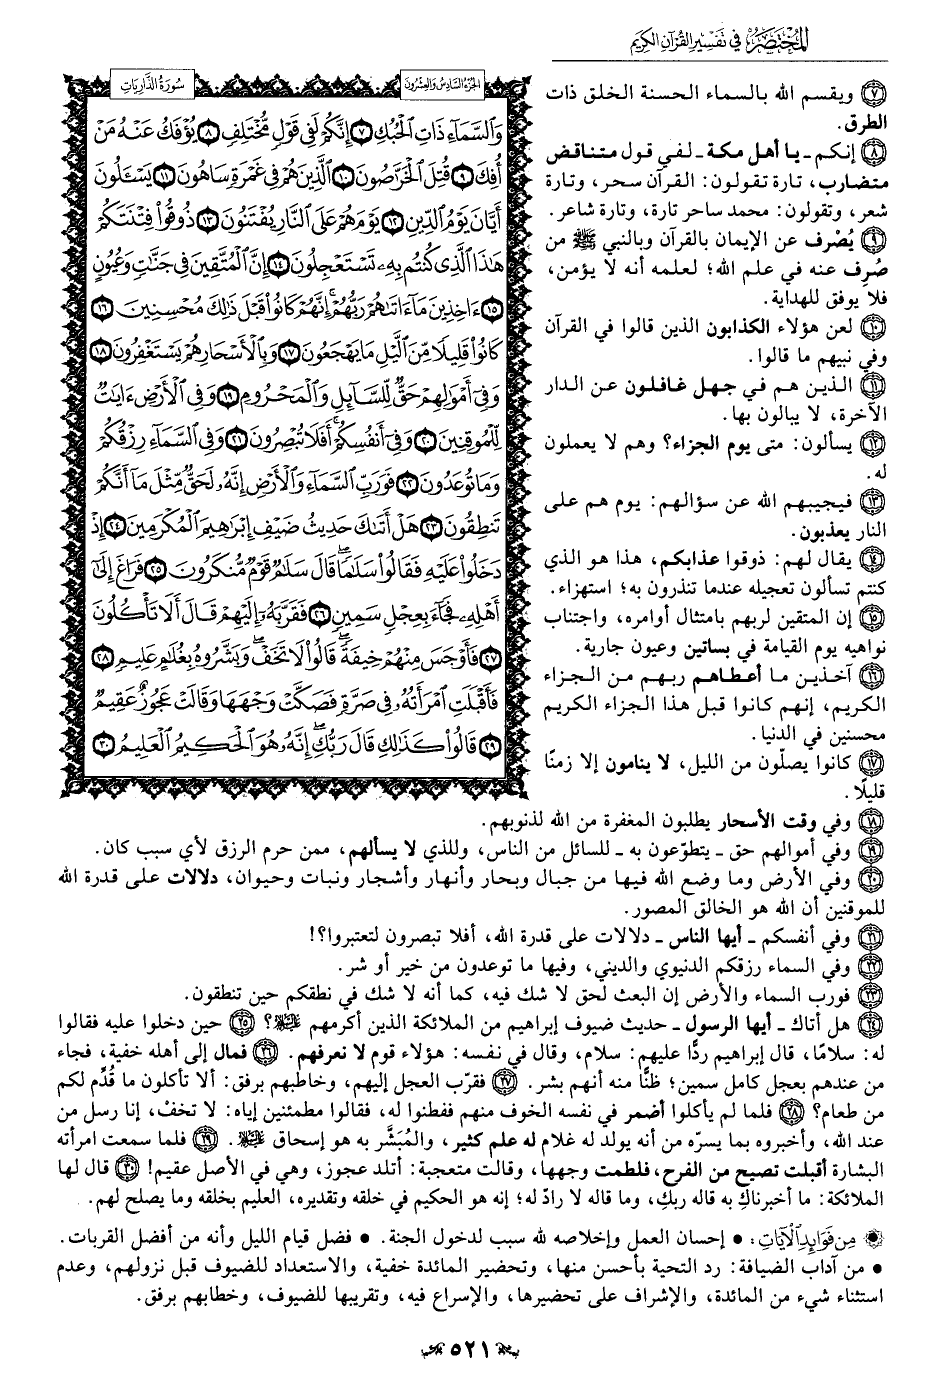 المختصر في تفسير القرآن الكريم
الجزء السادس والعشرون
سورة الذاريات
وَالسَّمَآءِ ذَاتِ الْحُبُكِ ٧ إِنَّكُمْ لَفِي قَوْلٍ مُّخْتَلِفٍ ٨ يُؤْفَكُ عَنْهُ مَنْ
أُفِكَ ٩ قُتِلَ الْخَرَّاصُونَ ١٠ الَّذِينَ هُمْ فِي غَمْرَةٍ سَاهُونَ ١١ يَسْـَٔلُونَ
أَيَّانَ يَوْمُ الدِّينِ ١٢ يَوْمَ هُمْ عَلَى النَّارِ يُفْتَنُونَ ١٣ ذُوقُوا۟ فِتْنَتَكُمْ
هَٰذَا الَّذِي كُنتُم بِهِۦ تَسْتَعْجِلُونَ ١٤ إِنَّ الْمُتَّقِينَ فِي جَنَّٰتٍ وَعُيُونٍ
١٥ ءَاخِذِينَ مَآ ءَاتَىٰهُمْ رَبُّهُمْ ۚ إِنَّهُمْ كَانُوا۟ قَبْلَ ذَٰلِكَ مُحْسِنِينَ ١٦
كَانُوا۟ قَلِيلًا مِّنَ الَّيْلِ مَا يَهْجَعُونَ ١٧ وَبِالْأَسْحَارِ هُمْ يَسْتَغْفِرُونَ ١٨
وَفِيٓ أَمْوَٰلِهِمْ حَقٌّ لِّلسَّآئِلِ وَالْمَحْرُومِ ١٩ وَفِي الْأَرْضِ ءَايَٰتٌ
لِّلْمُوقِنِينَ ٢٠ وَفِيٓ أَنفُسِكُمْ ۚ أَفَلَا تُبْصِرُونَ ٢١ وَفِي السَّمَآءِ رِزْقُكُمْ
وَمَا تُوعَدُونَ ٢٢ فَوَرَبِّ السَّمَآءِ وَالْأَرْضِ إِنَّهُۥ لَحَقٌّ مِّثْلَ مَآ أَنَّكُمْ
تَنطِقُونَ ٢٣ هَلْ أَتَىٰكَ حَدِيثُ ضَيْفِ إِبْرَٰهِيمَ الْمُكْرَمِينَ ٢٤ إِذْ
دَخَلُوا۟ عَلَيْهِ فَقَالُوا۟ سَلَٰمًا ۖ قَالَ سَلَٰمٌ قَوْمٌ مُّنكَرُونَ ٢٥ فَرَاغَ إِلَىٰٓ
أَهْلِهِۦ فَجَآءَ بِعِجْلٍ سَمِينٍ ٢٦ فَقَرَّبَهُۥٓ إِلَيْهِمْ قَالَ أَلَا تَأْكُلُونَ
٢٧ فَأَوْجَسَ مِنْهُمْ خِيفَةً ۖ قَالُوا۟ لَا تَخَفْ ۖ وَبَشَّرُوهُ بِغُلَٰمٍ عَلِيمٍ ٢٨
فَأَقْبَلَتِ امْرَأَتُهُۥ فِي صَرَّةٍ فَصَكَّتْ وَجْهَهَا وَقَالَتْ عَجُوزٌ عَقِيمٌ
٢٩ قَالُوا۟ كَذَٰلِكِ قَالَ رَبُّكِ ۖ إِنَّهُۥ هُوَ الْحَكِيمُ الْعَلِيمُ ٣٠
٧ ويقسم الله بالسماء الحسنة الخلق ذات
الطرق.
٨ إنكم ـ يا أهل مكة ـ لفي قول متناقض
متضارب، تارة تقولون: القرآن سحر، وتارة
شعر، وتقولون: محمد ساحر تارة، وتارة شاعر.
٩ يُصْرف عن الإيمان بالقرآن وبالنبي ﷺ من
صُرِف عنه في علم الله؛ لعلمه أنه لا يؤمن،
فلا يوفق للهداية.
١٠ لعن هؤلاء الكذابون الذين قالوا في القرآن
وفي نبيهم ما قالوا.
١١ الذين هم في جهل غافلون عن الدار
الآخرة، لا يبالون بها.
١٢ يسألون: متى يوم الجزاء؟ وهم لا يعملون
له.
١٣ فيجيبهم الله عن سؤالهم: يوم هم على
النار يعذبون.
١٤ يقال لهم: ذوقوا عذابكم، هذا هو الذي
كنتم تسألون تعجيله عندما تنذرون به؛ استهزاء.
١٥ إن المتقين لربهم بامتثال أوامره، واجتناب
نواهيه يوم القيامة في بساتين وعيون جارية.
١٦ آخذين ما أعطاهم ربهم من الجزاء
الكريم، إنهم كانوا قبل هذا الجزاء الكريم
محسنين في الدنيا.
١٧ كانوا يصلّون من الليل، لا ينامون إلا زمنًا
قليلًا.
١٨ وفي وقت الأسحار يطلبون المغفرة من الله لذنوبهم.
١٩ وفي أموالهم حق ـ يتطوّعون به ـ للسائل من الناس، وللذي لا يسألهم، ممن حرم الرزق لأي سبب كان.
٢٠ وفي الأرض وما وضع الله فيها من جبال وبحار وأنهار وأشجار ونبات وحيوان، دلالات على قدرة الله
للموقنين أن الله هو الخالق المصور.
٢١ وفي أنفسكم ـ أيها الناس ـ دلالات على قدرة الله، أفلا تبصرون لتعتبروا؟!
٢٢ وفي السماء رزقكم الدنيوي والديني، وفيها ما توعدون من خير أو شر.
٢٣ فورب السماء والأرض إن البعث لحق لا شك فيه، كما أنه لا شك في نطقكم حين تنطقون.
٢٤ هل أتاك ـ أيها الرسول ـ حديث ضيوف إبراهيم من الملائكة الذين أكرمهم عليه السلام؟ ٢٥ حين دخلوا عليه فقالوا
له: سلامًا، قال إبراهيم ردًّا عليهم: سلام، وقال في نفسه: هؤلاء قوم لا نعرفهم. ٢٦ فمال إلى أهله خفية، فجاء
من عندهم بعجل كامل سمين؛ ظنًّا منه أنهم بشر. ٢٧ فقرّب العجل إليهم، وخاطبهم برفق: ألا تأكلون ما قُدِّم لكم
من طعام؟ ٢٨ فلما لم يأكلوا أضمر في نفسه الخوف منهم ففطنوا له، فقالوا مطمئنين إياه: لا تخفْ، إنا رسل من
عند الله، وأخبروه بما يسرّه من أنه يولد له غلام له علم كثير، والمُبَشَّر به هو إسحاق عليه السلام. ٢٩ فلما سمعت امرأته
البشارة أقبلت تصيح من الفرح، فلطمت وجهها، وقالت متعجبة: أتلد عجوز، وهي في الأصل عقيم! ٣٠ قال لها
الملائكة: ما أخبرناكِ به قاله ربكِ، وما قاله لا رادّ له؛ إنه هو الحكيم في خلقه وتقديره، العليم بخلقه وما يصلح لهم.
من فوائد الآيات: • إحسان العمل وإخلاصه لله سبب لدخول الجنة. • فضل قيام الليل وأنه من أفضل القربات.
• من آداب الضيافة: رد التحية بأحسن منها، وتحضير المائدة خفية، والاستعداد للضيوف قبل نزولهم، وعدم
استثناء شيء من المائدة، والإشراف على تحضيرها، والإسراع فيه، وتقريبها للضيوف، وخطابهم برفق.
٥٢١